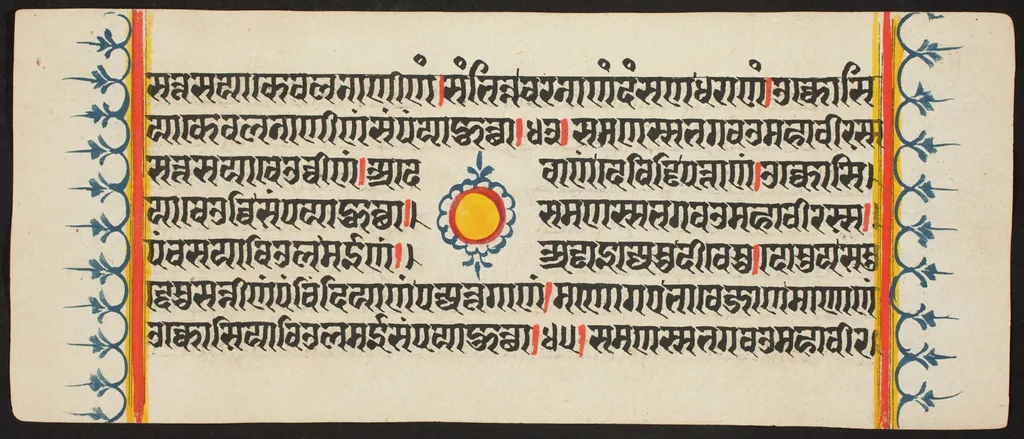 सत्तसयाकेवलनाणीणं।संभिन्नवरनाणंदंसणधराणं।उक्कोसि
याकेवलनाणीणंसंपयाहुत्था।४३।समणस्सभगवउमहावीरस्स
सत्तसयावेउव्वीणं।अदे वाणंदेविड्ढिपत्ताणं।उक्कोसि।
यावेउव्विसंपयाहुत्था।। समणस्सभगवउमहावीरस्स।
पंचसयाविउलमईणं।। अड्ढाइज्जेसुदीवेसु।दोसुयसमु
द्देसुसन्नीणंपंचिंदियाणंपज्जत्तगाणं।मणोगएभावेजाणमाणाणं
उक्कोसियाविउलमईसंपयाहुत्था।४५।समणस्सभगवउमहावीर।